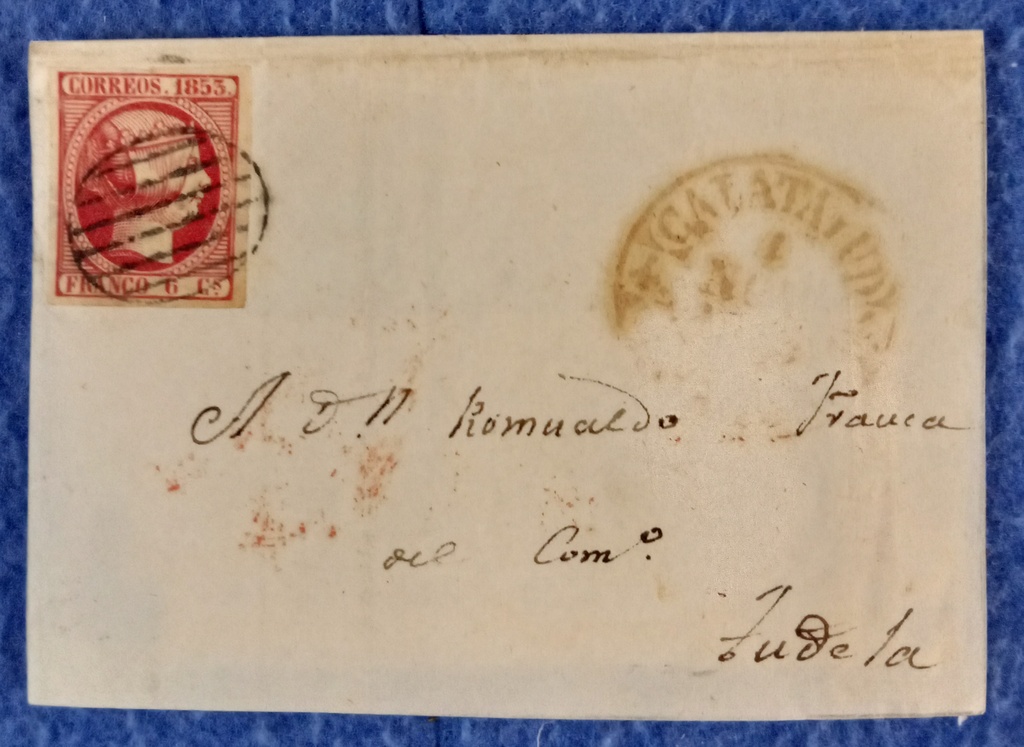 CORREOS. 1853.
FRANCO 6 Cs
CALATAYUD
4
A D.n Romualdo Franca
del Como.
Tudela